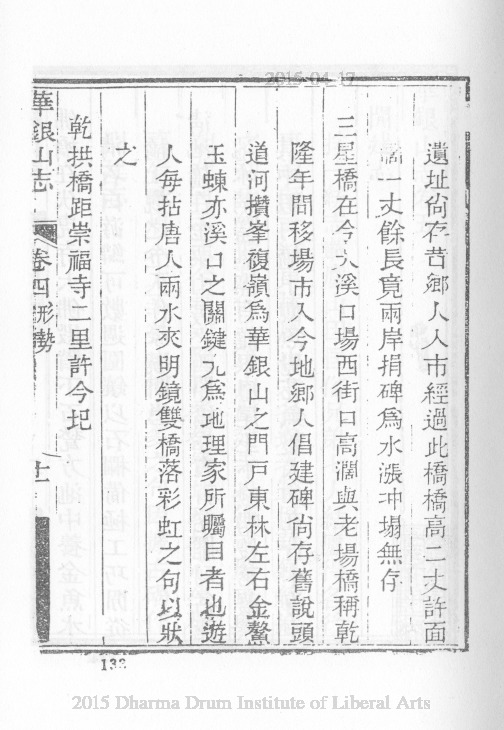 2015-04-17
遺址尙存昔鄉人人市經過此橋橋高二丈許面
濶一丈餘長竟兩岸捐碑爲水漲冲塌無存
三星橋在今大溪口場西街口高濶與老場橋稱乾
隆年間移場市入今地鄉人倡建碑尙存舊說頭
道河攢峯複嶺爲華銀山之門戸東林左右金鰲
玉蝀亦溪口之關鍵尤爲地理家所矚目者也遊
人每拈唐人兩水夾明鏡雙橋落彩虹之句以狀
之
乾拱橋距崇福寺二里許今圮
華銀山志
卷四形勢
十一
133
2015 Dharma Drum Institute of Liberal Arts